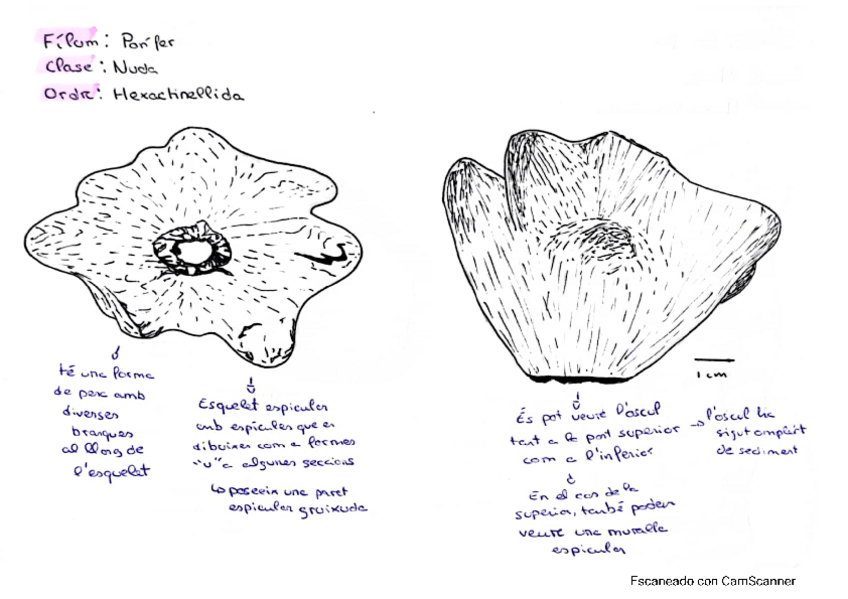 Fílum: Porífer
Clase: Nuda
Ordre: Hexactinellida
té una forma
de peix amb
diverses
branques
al llarg de
l'esquelet
Esquelet espicular
amb espicules que es
dibuixen com a formes
"u" a algunes seccions
↳ poseein una paret
espicular gruixuda
1 cm
És pot veure l'òscul
tant a la part superior
com a l'inferior
→ l'oscul ha
sigut omplirt
de sediment
En el cas de la
superior, també podem
veure una muralla
espicular
Escaneado con CamScanner